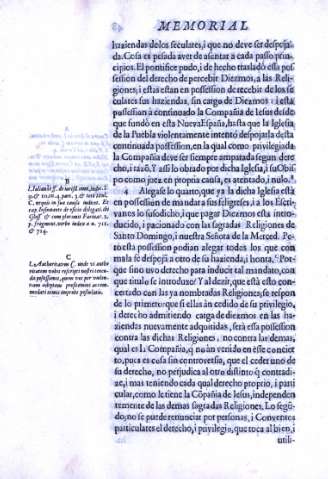 MEMORIAL
haziendas de los seculares, i que no deve ser despoja-
da. Cosa es pesada aver de asuntar a cada passo prin-
cipios. El pontifice pudo, i de hecho trasladó esta pos
session del derecho de percebir Diezmos, a las Reli-
giones, i estas estan en possession de recebir de los se
culares sus haziendas, sin cargo de Diezmos: i esta
possession à continuado la Compañia de Iesus desde
que fundò en esta Nueva España, hasta que la Iglesia
de la Puebla violentamente intentò despojarla desta
continuada possession, en la qual como privilegiada
la Compañia deve ser siempre amparada segun dere
cho, i razõ. Y assi lo obrado por dicha Iglesia, i su Obis
po como juez en propria causa, es atentado, i nulo.
4 Alegase lo quarto, que ya la dicha Iglesia està
en possession de mandar a sus feligreses, i a los Escri
vanos lo susodicho, i que pagar Diezmos està intro-
ducido, i pacionado con las sagradas Religiones de
Santo Domingo, i nuestra Señora de la Merced. Pe-
ro esta possession podian alegar todos los que con
mala fe despojã a otro de su hazienda, i honta. Por-
que sino uvo derecho para inducir tal mandato, con
que titulo se introduxo? Y al dezir, que està esto con-
certado con las ya nombradas Religiones, se respon
de lo primero: que si ellas àn cedido de su privilegio,
i derecho admitiendo carga de diezmos en las ha-
ziendas nuevamente adquiridas, serà essa possession
contra las dichas Religiones, no contra las demas,
qual es la Compañia, q no àn venido en esse concier
to, pues es cosa sin controversia, que el ceder uno de
su derecho, no perjudica al otro distinto q contradi-
ze, i mas teniendo cada qual derecho proprio, i parti
cular, como le tiene la Cõpañia de Iesus, independien
temente de las demas sagradas Religiones. Lo segũ-
do, no se puede renunciar por personas, i Conventos
particulares el derecho, i privilegio, que toca al bien, i
utili-
B
C